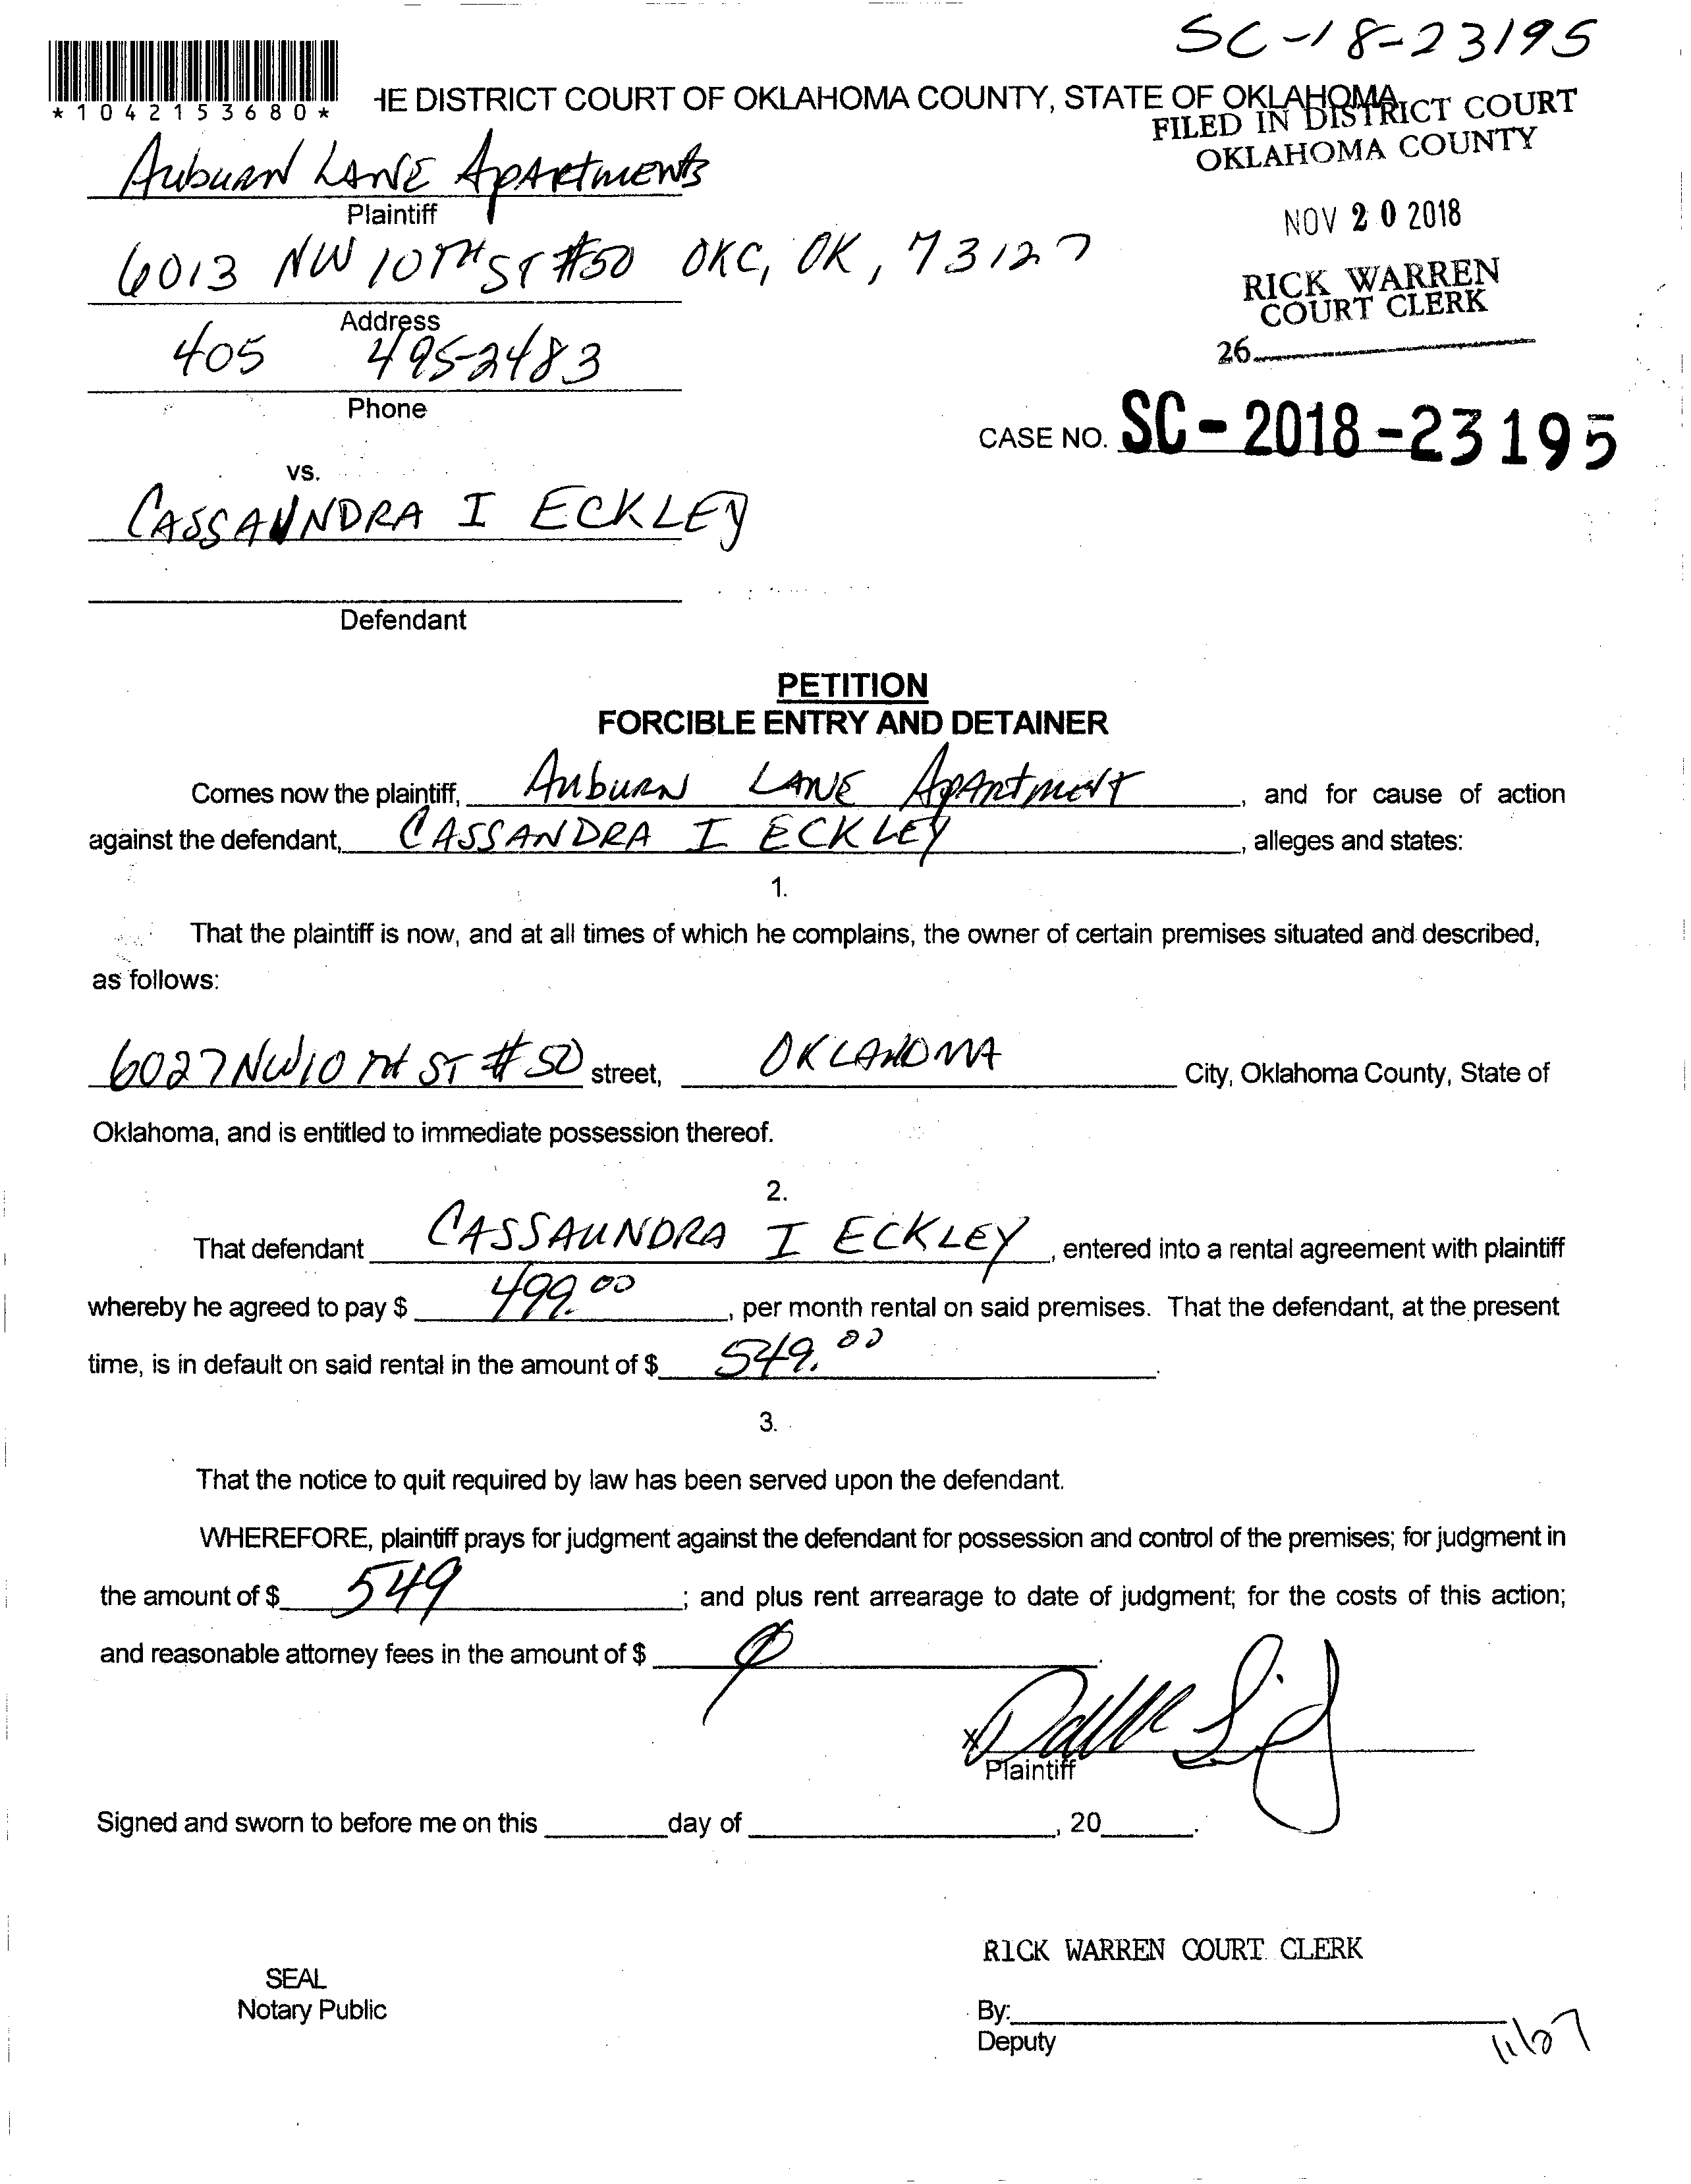 SC-18-23195
*1042153680*
HE DISTRICT COURT OF OKLAHOMA COUNTY, STATE OF OKLAHOMA
FILED IN DISTRICT COURT
OKLAHOMA COUNTY
Auburn LANE ApARtmENts
Plaintiff
NOV 20 2018
6013 NW 10TH ST #50 OKC, OK, 73127
RICK WARREN
COURT CLERK
Address
26
405 495-2483
Phone
CASE NO. SC-2018-23195
vs.
CASSAUNDRA I ECKLEY
Defendant
PETITION
FORCIBLE ENTRY AND DETAINER
Comes now the plaintiff, Auburn LANE ApARtmENT, and for cause of action
against the defendant, CASSANDRA I ECKLEY, alleges and states:
1.
That the plaintiff is now, and at all times of which he complains, the owner of certain premises situated and described,
as follows:
6027 NW 10 TH ST #50 street, OKLAHOMA City, Oklahoma County, State of
Oklahoma, and is entitled to immediate possession thereof.
2.
That defendant CASSAUNDRA I ECKLEY, entered into a rental agreement with plaintiff
whereby he agreed to pay $ 499.00, per month rental on said premises. That the defendant, at the present
time, is in default on said rental in the amount of $ 549.00.
3.
That the notice to quit required by law has been served upon the defendant.
WHEREFORE, plaintiff prays for judgment against the defendant for possession and control of the premises; for judgment in
the amount of $ 549; and plus rent arrearage to date of judgment; for the costs of this action;
and reasonable attorney fees in the amount of $
X
Plaintiff
Signed and sworn to before me on this day of , 20 .
RICK WARREN COURT CLERK
SEAL
Notary Public
By:
Deputy
11/27